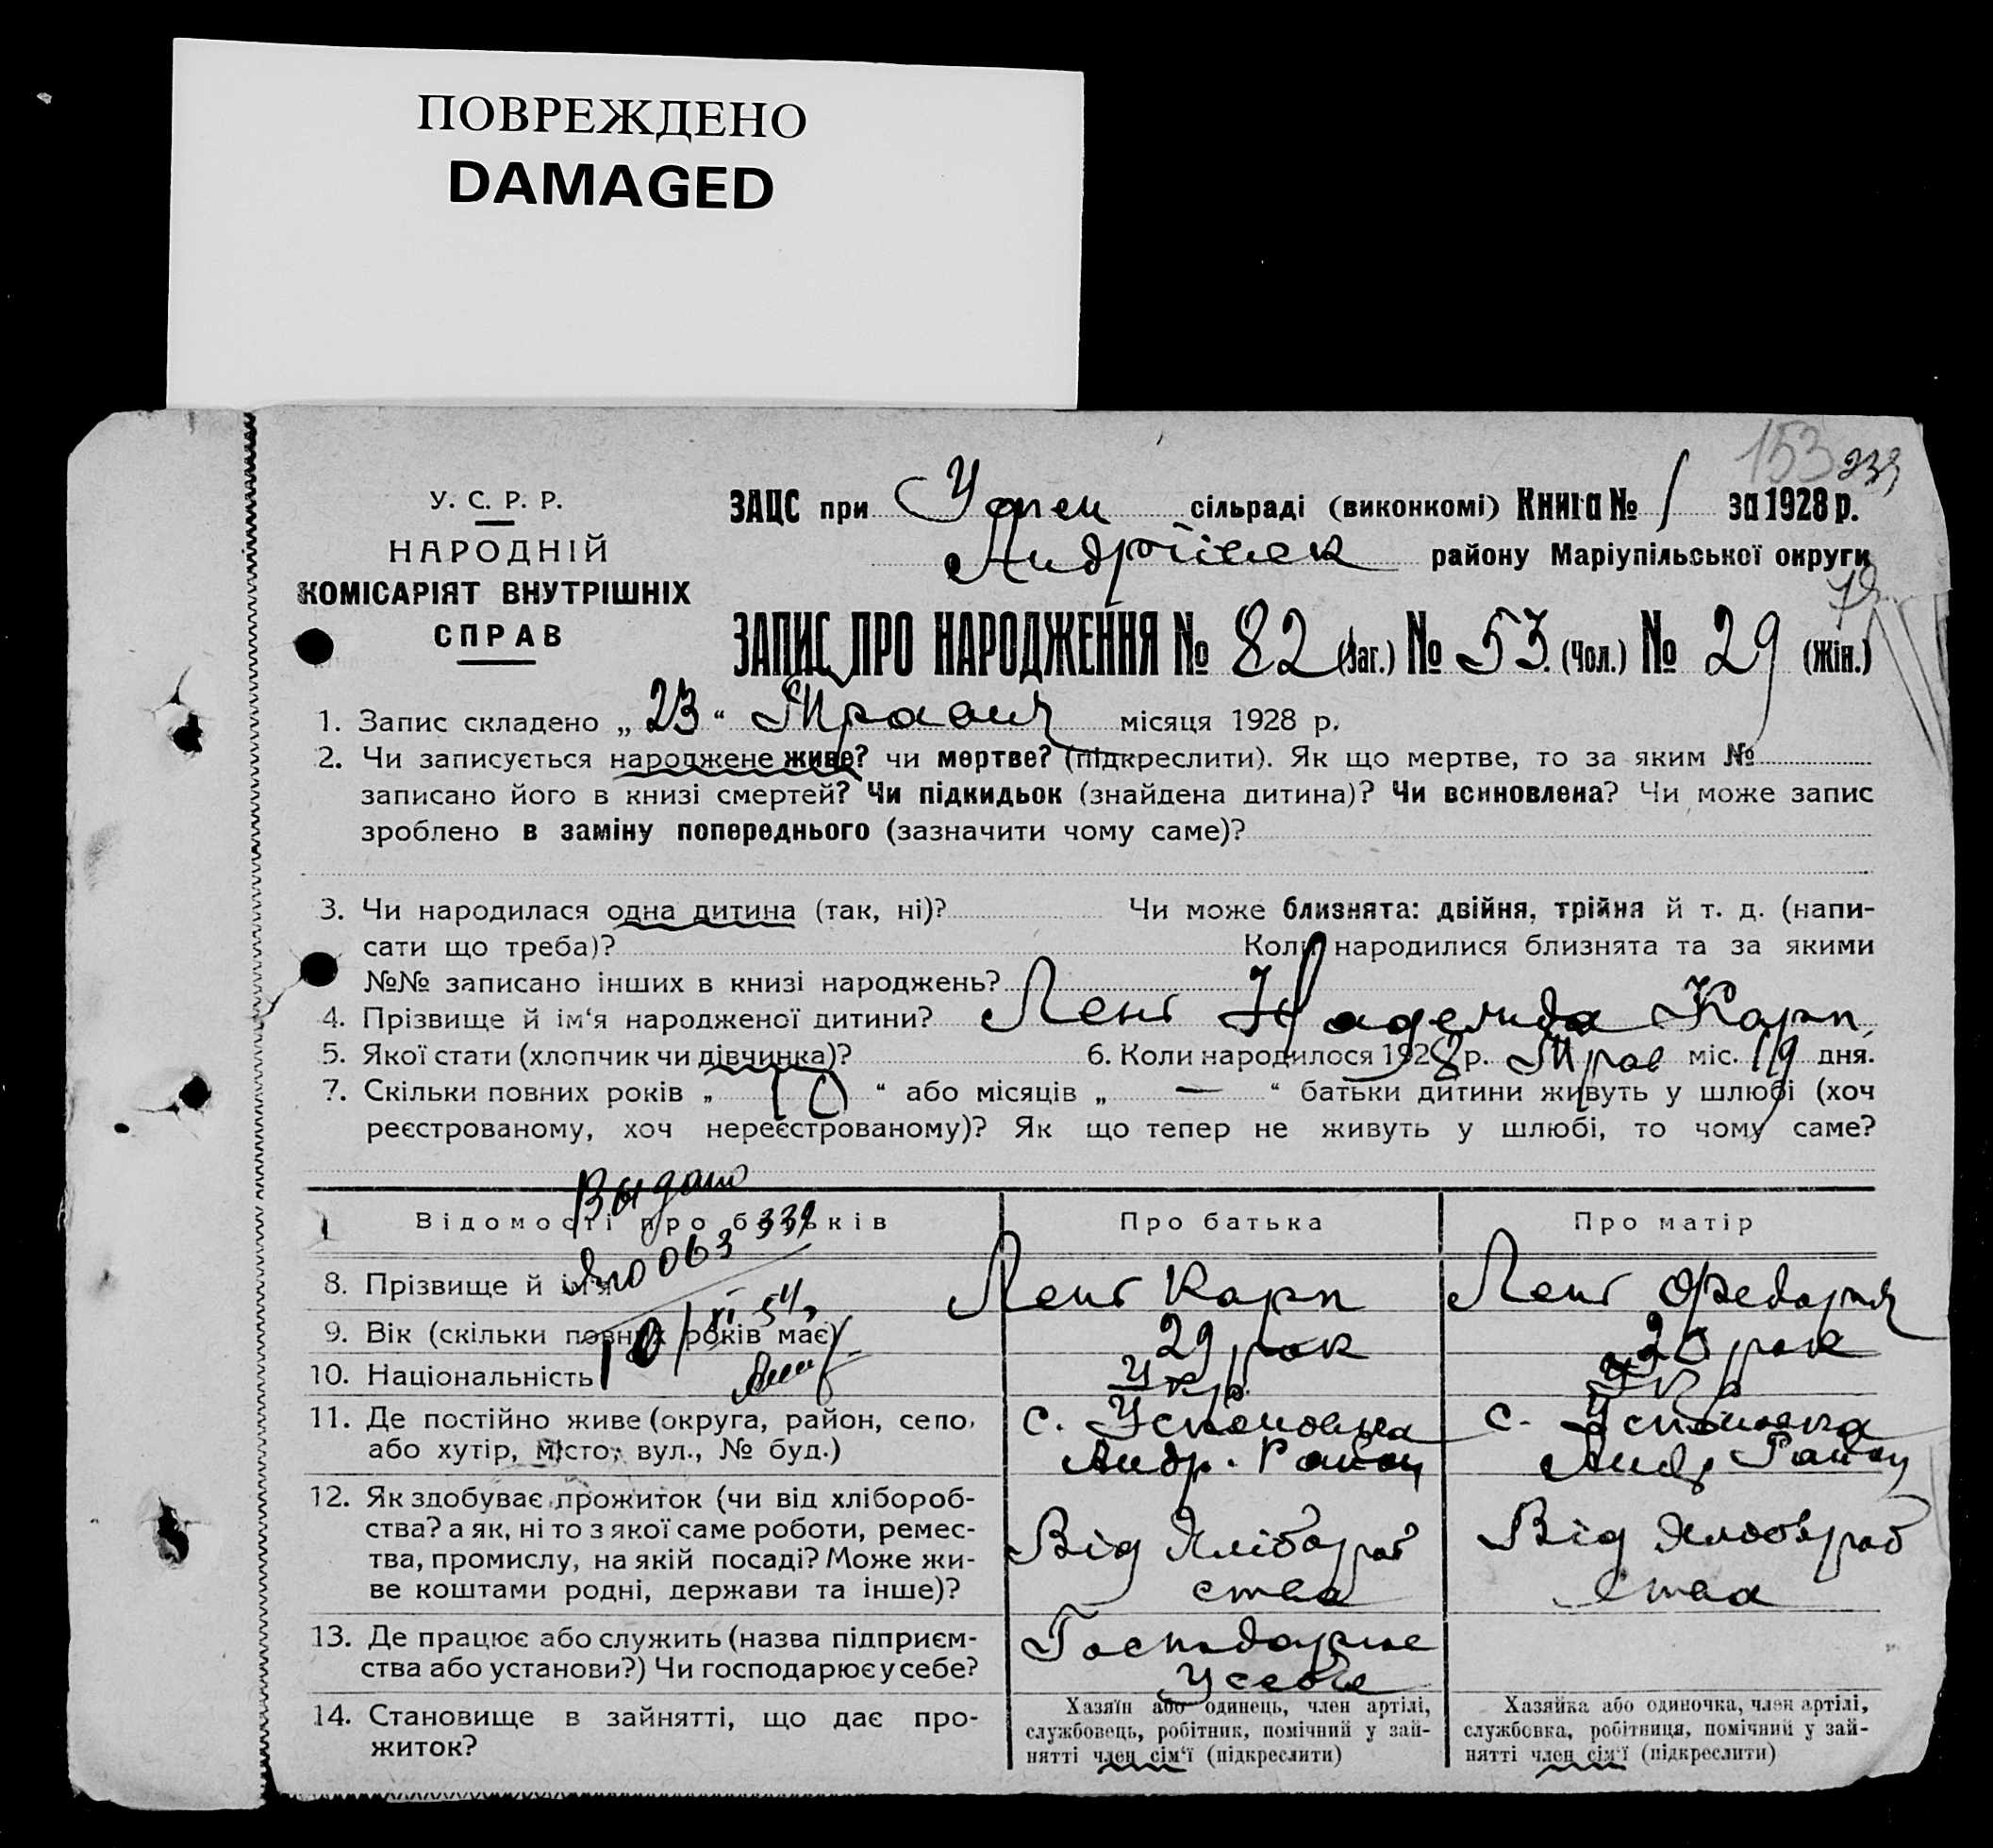 ПОВРЕЖДЕНО
DAMAGED
153 239
У. С. Р. Р.
НАРОДНІЙ
КОМІСАРІЯТ ВНУТРІШНІХ
СПРАВ
ЗАЦС при сільраді (виконкомі) Книга № 1 за 1928 р.
району Маріупільської округи
ЗАПИС ПРО НАРОДЖЕННЯ № 82 (Заг.) № 53. (Чол.) № 29 (Жін.)
1. Запис складено „ 23 “ Травня місяця 1928 р.
2. Чи записується народжене живе? чи мертве? (підкреслити). Як що мертве, то за яким №
записано його в книзі смертей? Чи підкидьок (знайдена дитина)? Чи всиновлена? Чи може запис
зроблено в заміну попереднього (зазначити чому саме)?
3. Чи народилася одна дитина (так, ні)? Чи може близнята: двійня, трійня й т. д. (напи-
сати що треба)? Коли народилися близнята та за якими
№№ записано інших в книзі народжень?
4. Прізвище й ім‘я народженої дитини? Лент Надежда Карп
5. Якої стати (хлопчик чи дівчинка)? 6. Коли народилося 1928 р. Трав міс. 19 дня.
7. Скільки повних років „ 10 “ або місяців „ — “ батьки дитини живуть у шлюбі (хоч
реєстрованому, хоч нереєстрованому)? Як що тепер не живуть у шлюбі, то чому саме?
Выдано
Відомості про батьків Про батька Про матір
8. Прізвище й ім‘я Лент Карп Лент
9. Вік (скільки повних років має) 29 рок рок
10. Національність Укр. Укр
11. Де постійно живе (округа, район, село, с. с.
або хутір, місто, вул., № буд.) Андр. Район Андр Район
12. Як здобуває прожиток (чи від хлібороб-
ства? а як, ні то з якої саме роботи, ремес- Від Хлібороб Від Хлібороб
тва, промислу, на якій посаді? Може жи-
ве коштами родні, держави та інше)? ства ства
13. Де працює або служить (назва підприєм-
ства або установи?) Чи господарює у себе? Господарює
у себе
14. Становище в зайнятті, що дає про-
житок?
Хазяїн або одинець, член артілі,
службовець, робітник, помічний у зай-
нятті член сім‘ї (підкреслити)
Хазяйка або одиночка, член артілі,
службовка, робітниця, помічний у зай-
нятті член сім‘ї (підкреслити)